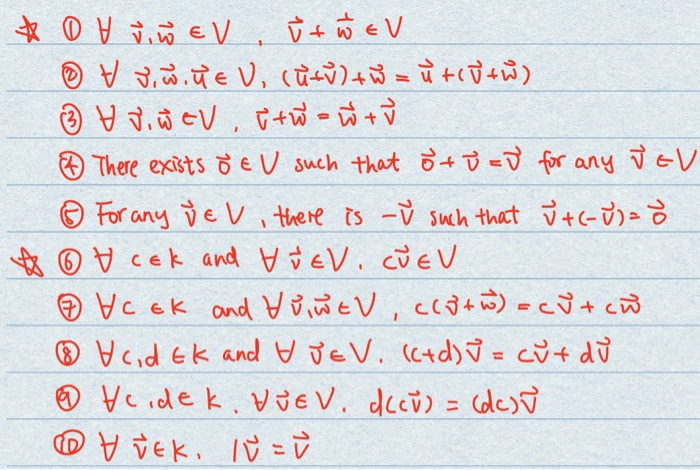 ☆ ① ∀ v⃗,w⃗ ∈ V , v⃗ + w⃗ ∈ V
② ∀ v⃗,w⃗,u⃗ ∈ V, (u⃗+v⃗)+w⃗ = u⃗+(v⃗+w⃗)
③ ∀ v⃗,w⃗ ∈ V , v⃗+w⃗ = w⃗+v⃗
④ There exists 0⃗ ∈ V such that 0⃗ + v⃗ = v⃗ for any v⃗ ∈ V
⑤ For any v⃗ ∈ V , there is -v⃗ such that v⃗+(-v⃗) = 0⃗
☆ ⑥ ∀ c∈k and ∀ v⃗ ∈ V. cv⃗ ∈ V
⑦ ∀c ∈k and ∀ v⃗,w⃗ ∈ V , c(v⃗+w⃗) = cv⃗ + cw⃗
⑧ ∀c,d ∈k and ∀ v⃗ ∈ V. (c+d)v⃗ = cv⃗ + dv⃗
⑨ ∀c,d∈k. ∀v⃗∈V. d(cv⃗) = (dc)v⃗
⑩ ∀ v⃗∈k. 1v⃗ = v⃗